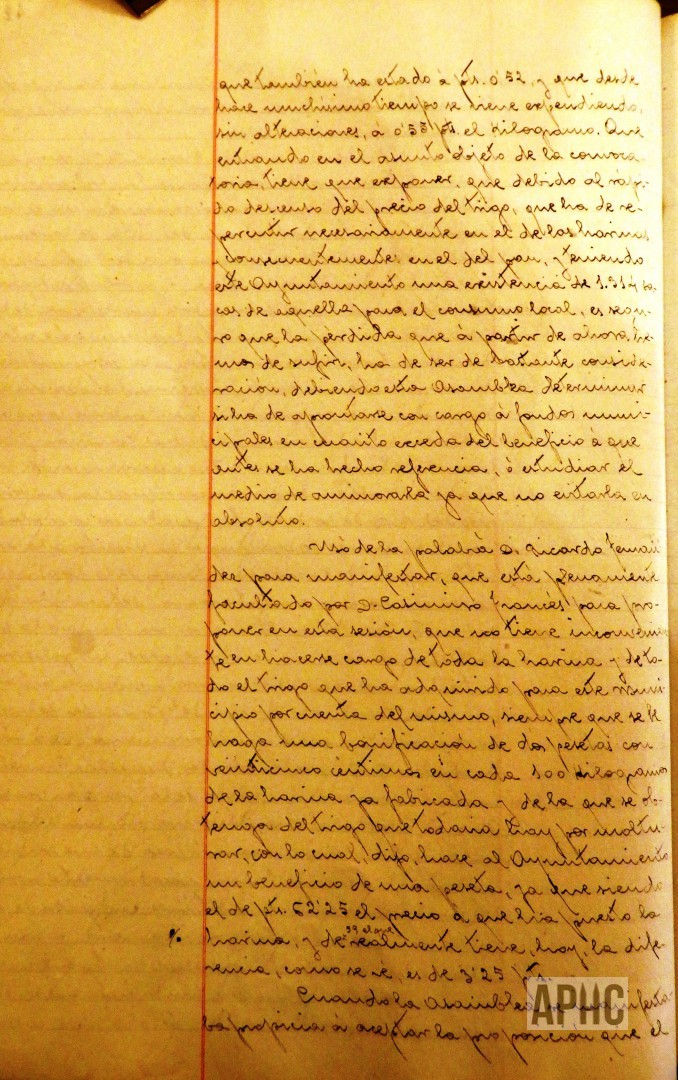 que también ha estado á pts. 0'52, y que desde
hace muchísimo tiempo se viene expendiendo,
sin alteraciones, á 0'55 pts. el kilogramo. Que
entrando en el asunto objeto de la convoca-
toria, tiene que exponer, que debido al rápi-
do descenso del precio del trigo, que ha de re-
percutir necesariamente en el de las harinas
y consecuentemente en el del pan, y teniendo
este Ayuntamiento una existencia de 1.914 sa-
cas de aquella para el consumo local, es segu-
ro que la pérdida que á partir de ahora he-
mos de sufrir, ha de ser de bastante conside-
ración, debiendo esta Asamblea determinar
si ha de aportarse con cargo á fondos muni-
cipales en cuanto exceda del beneficio á que
antes se ha hecho referencia, ó estudiar el
medio de aminorarla ya que no evitarla en
absoluto.
Usó de la palabra D. Ricardo Fernán
dez para manifestar, que está plenamente
facultado por D. Casimiro Francés para pro-
poner en esta sesión, que no tiene inconvenien
te en hacerse cargo de toda la harina y de to-
do el trigo que ha adquirido para este Muni
cipio por cuenta del mismo, siempre que se le
haga una bonificación de dos pesetas con
veinticinco céntimos en cada 100 kilogramos
de la harina ya fabricada y de la que se ob-
tenga del trigo que todavia hay por moltu-
rar, con lo cual, dijo, hace al Ayuntamiento
un beneficio de una peseta, ya que siendo
el de pts. 62'25 el precio á que hia puesto la
harina, y de 59 el que realmente tiene, hoy, la dife-
rencia, como se vé, es de 3'25 pts.
Cuando la Asamblea se manifesta-
ba propicia á aceptar la proposición que el
APHC